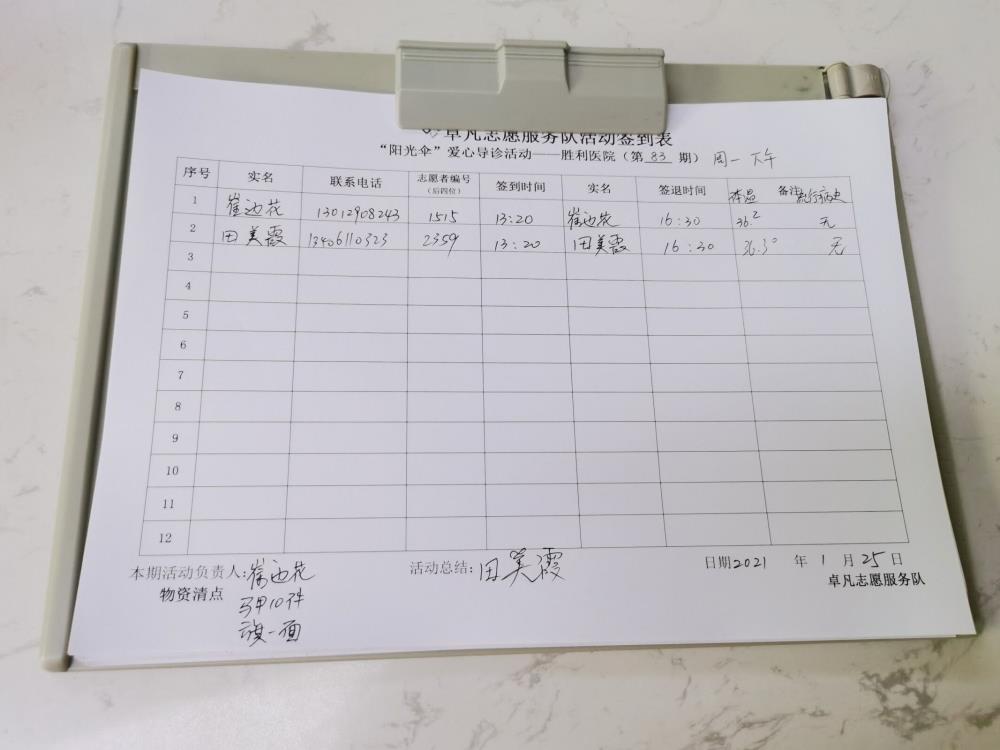 卓凡志愿服务队活动签到表
“阳光伞”爱心导诊活动——胜利医院（第 83 期） 周一 下午
序号 实名 联系电话 志愿者编号（后四位） 签到时间 实名 签退时间 体温 备注 流行病史
1 崔迎花 13012908243 1515 13:20 崔迎花 16:30 36.2 无
2 田美霞 13406110323 2359 13:20 田美霞 16:30 36.3° 无
3
4
5
6
7
8
9
10
11
12
本期活动负责人:崔迎花 活动总结:田美霞 日期2021 年 1 月 25 日
物资清点 卓凡志愿服务队
马甲10件
旗一面